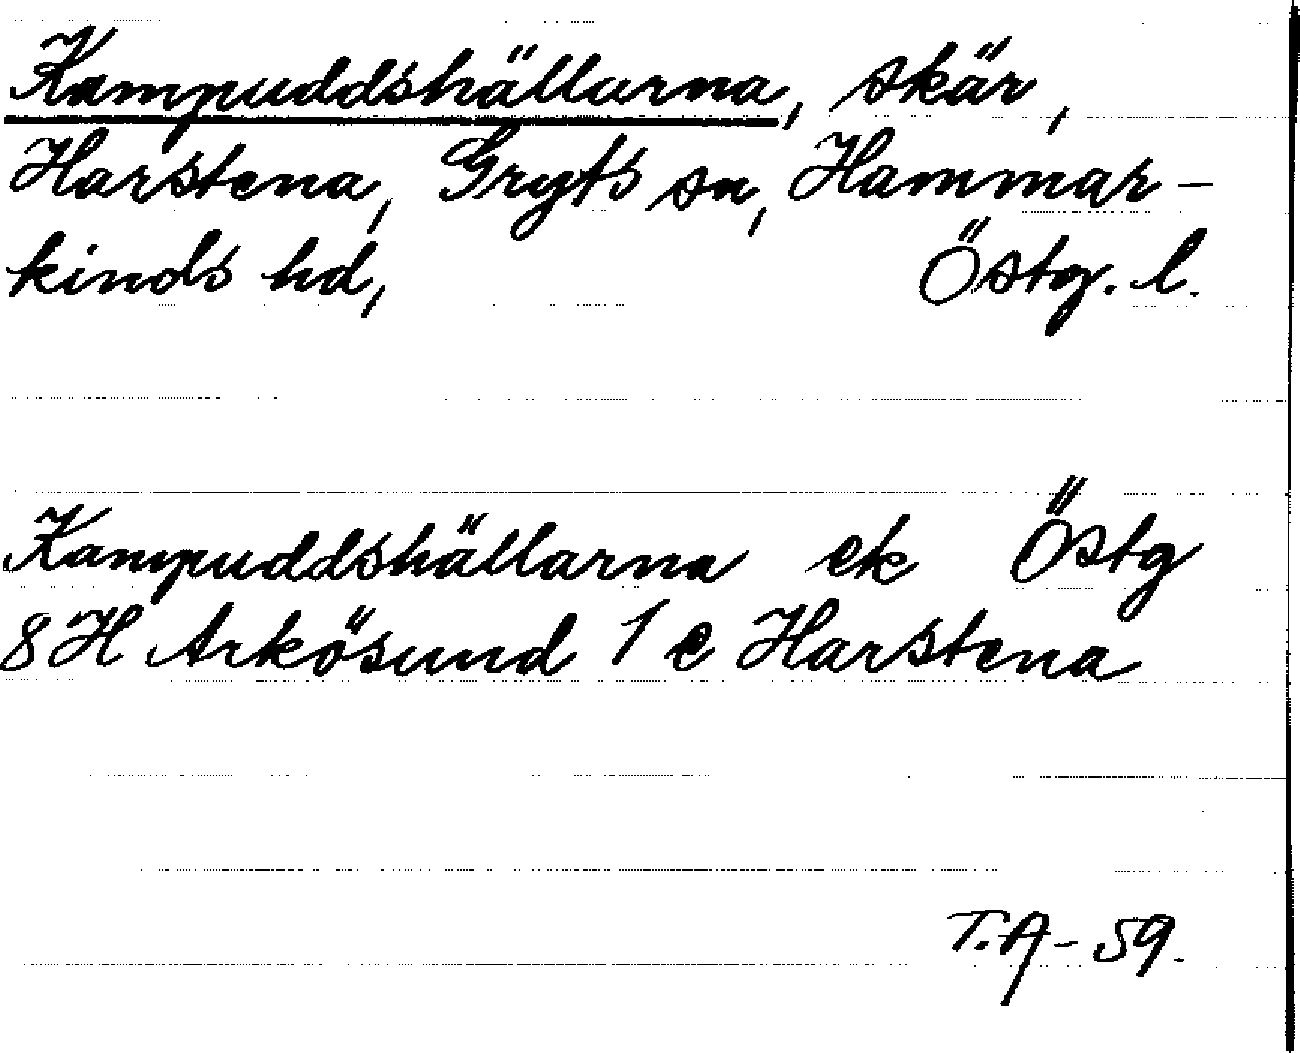 Kampuddshällarna, skär,
Harstena, Gryts sn, Hammar-
kinds hd, Östg. l.
Kampuddshällarna ek Östg
8H Arkösund 1 c Harstena
T.A-59.